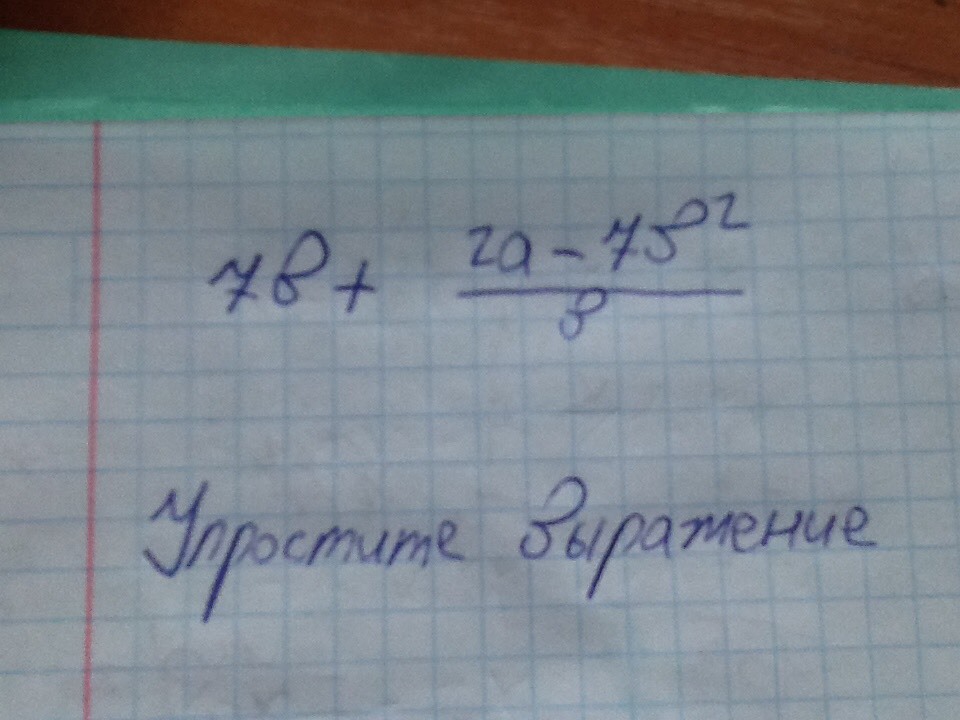 7в + \frac{2a - 7в^2}{в}
Упростите выражение